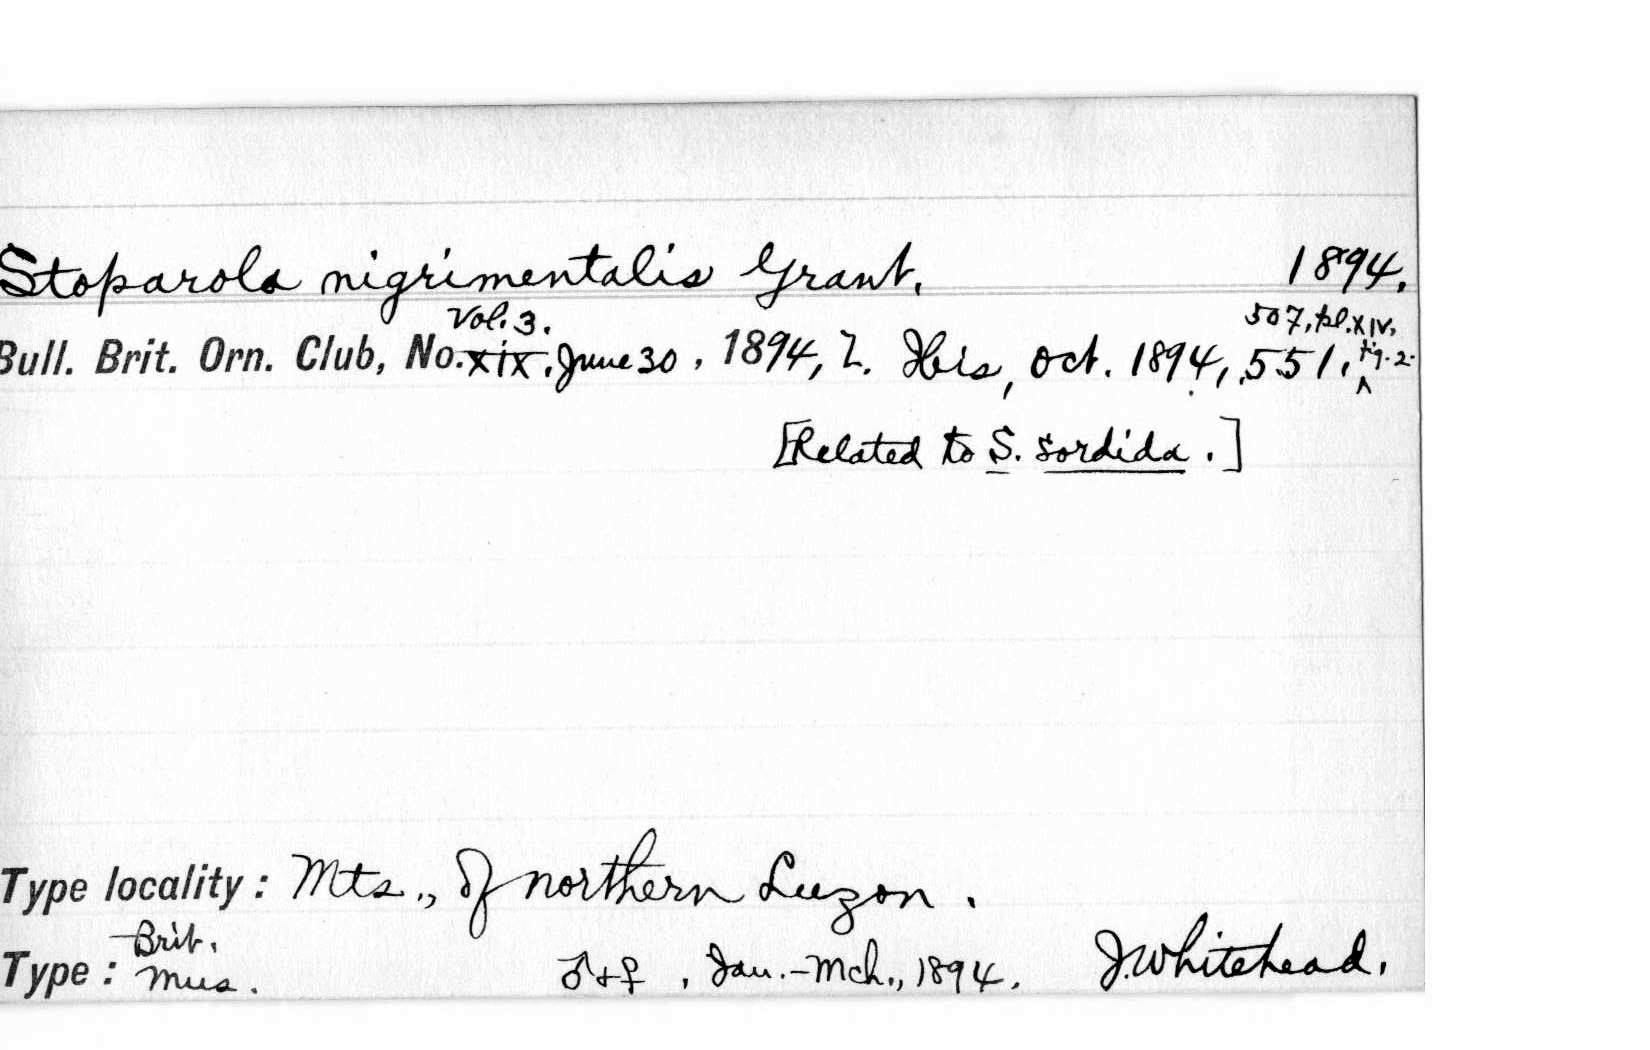 Stoparola nigrimentalis Grant. 1894.
Vol. 3. 507, pl. XIV,
Bull. Brit. Orn. Club, No. xix. June 30, 1894, L. Ibis, Oct. 1894, 551, fig. 2.
[Related to S. sordida.]
Type locality: Mts., of northern Luzon.
Brit.
Type: Mus. ♂+♀, Jan.-Mch., 1894. J. Whitehead.